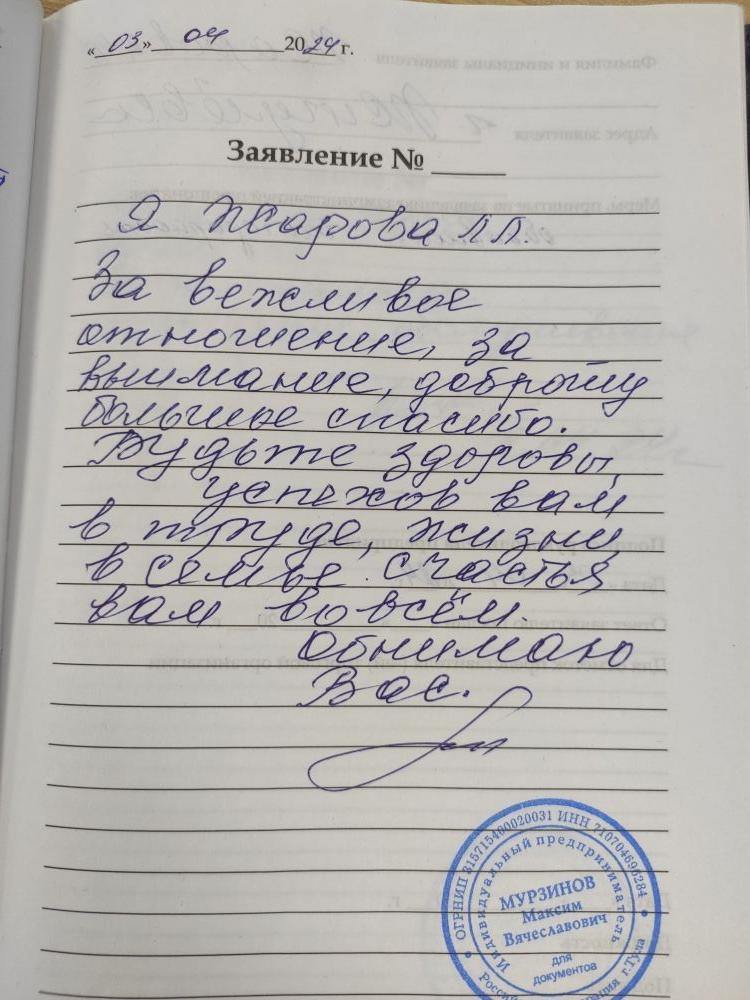 «03» 04 2024 г.
Заявление №
Я Жарова Л Л.
За вежливое
отношение, за
внимание, доброту
большое спасибо.
Будьте здоровы,
успехов вам
в труде, жизни
в семье. счастья
вам во всём.
Обнимаю
Вас.
ОГРНИП 315715400020031 ИНН 710704696284
Индивидуальный предприниматель
МУРЗИНОВ
Максим
Вячеславович
для
документов
г.Тула